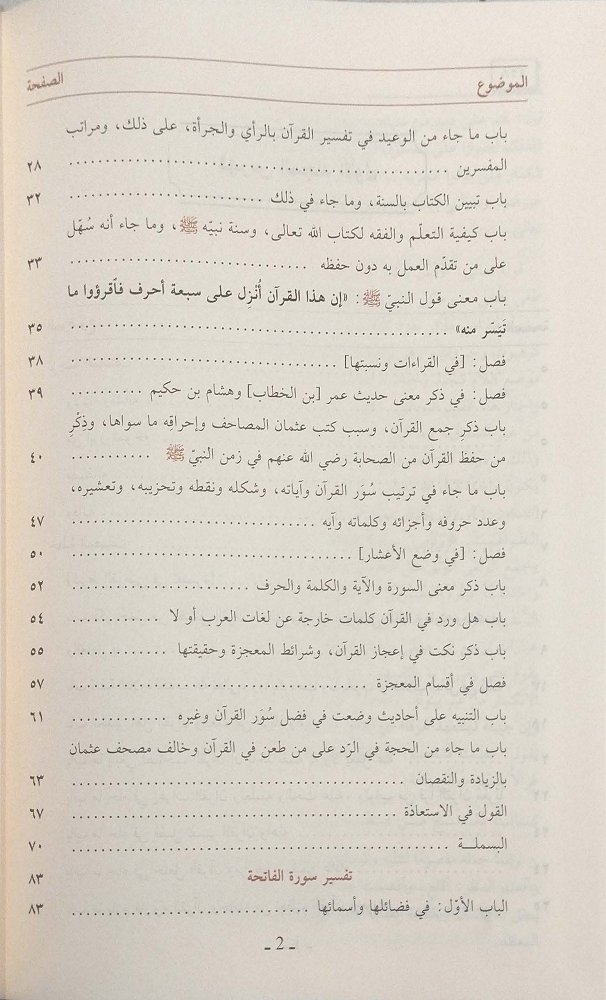 الموضوع الصفحة
باب ما جاء من الوعيد في تفسير القرآن بالرأي والجرأة، على ذلك، ومراتب
المفسرين ................................................ ٢٨
باب تبيين الكتاب بالسنة، وما جاء في ذلك ........................ ٣٢
باب كيفية التعلّم والفقه لكتاب الله تعالى، وسنة نبيّه ﷺ، وما جاء أنه سُهّل
على من تقدّم العمل به دون حفظه ............................ ٣٣
باب معنى قول النبيّ ﷺ: «إن هذا القرآن أُنْزِل على سبعة أحرف فٱقرؤوا ما
تَيَسّر منه» ................................................ ٣٥
فصل: [في القراءات ونسبتها] ................................ ٣٨
فصل: في ذكر معنى حديث عمر [بن الخطاب] وهشام بن حكيم .......... ٣٩
باب ذكر جمع القرآن، وسبب كتب عثمان المصاحف وإحراقِه ما سواها، وذِكْرِ
من حفظ القرآن من الصحابة رضي الله عنهم في زمن النبيّ ﷺ ........... ٤٠
باب ما جاء في ترتيب سُوَر القرآن وآياته، وشكله ونقطه وتحزيبه، وتعشيره،
وعدد حروفه وأجزائه وكلماته وآيه ............................ ٤٧
فصل: [في وضع الأعشار] ................................ ٥٠
باب ذكر معنى السورة والآية والكلمة والحرف .................... ٥٢
باب هل ورد في القرآن كلمات خارجة عن لغات العرب أو لا ............ ٥٤
باب ذكر نكت في إعجاز القرآن، وشرائط المعجزة وحقيقتها ............ ٥٥
فصل في أقسام المعجزة .................................... ٥٧
باب التنبيه على أحاديث وضعت في فضل سُوَر القرآن وغيره ............ ٦١
باب ما جاء من الحجة في الرّد على من طعن في القرآن وخالف مصحف عثمان
بالزيادة والنقصان ........................................ ٦٣
القول في الاستعاذة ........................................ ٦٧
البسملـــة ................................................ ٧٠
تفسير سورة الفاتحة ٨٣
الباب الأوّل: في فضائلها وأسمائها ............................ ٨٣
ـ 2 ـ